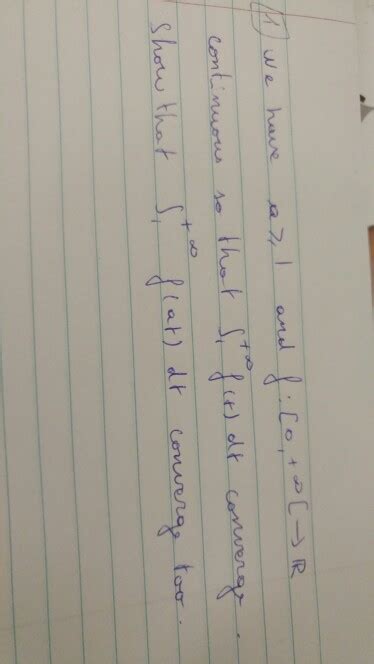 (1) We have a ≥ 1 and f : [0, +∞[ → ℝ
continuous so that ∫₁^{+∞} f(t) dt converge.
Show that ∫₁^{+∞} f(at) dt converge too.